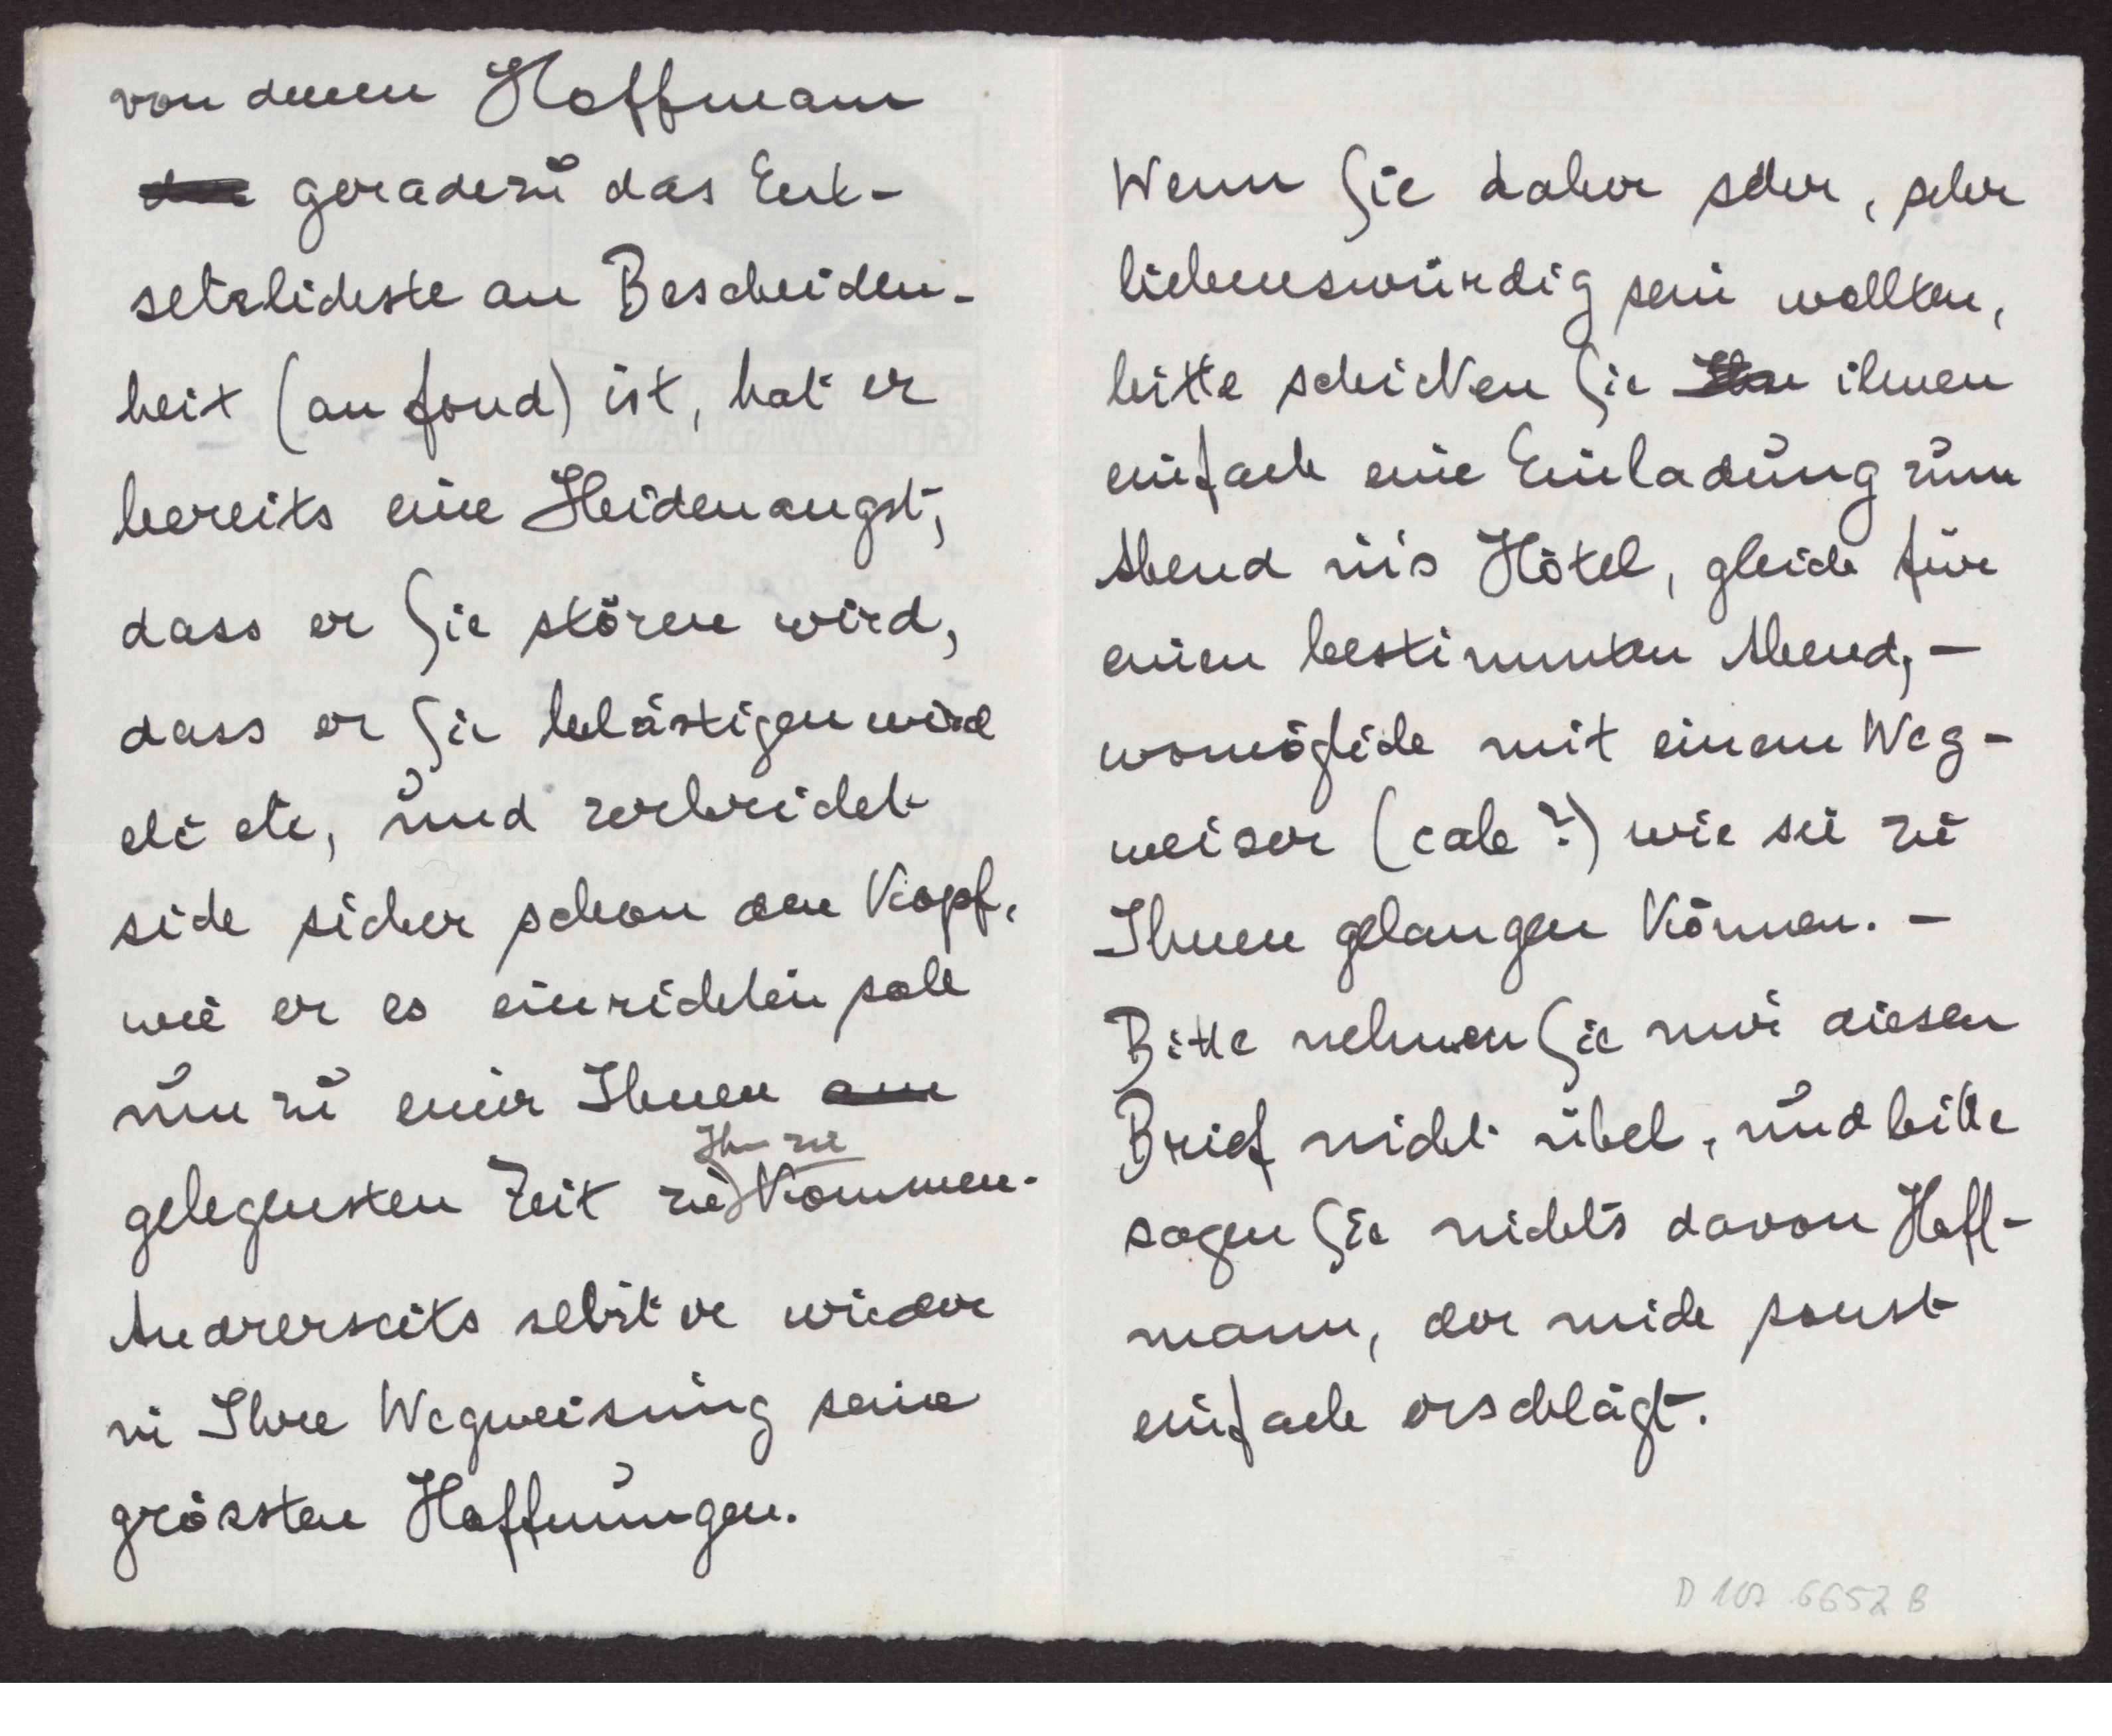 von denen Hoffmann
geradezu das Ent-
setzlichste an Bescheiden-
heit (au fond) ist, hat er
bereits eine Heidenangst,
dass er Sie stören wird,
dass er Sie belästigen wird
etc etc, und zerbricht
sich sicher schon den Kopf,
wie er es einrichten soll
nun zu einer Ihnen
Ihn zu
gelegensten Zeit zu kommen.
Andrerseits setzt er wieder
in Ihre Wegweisung seine
grössten Hoffnungen.
Wenn Sie daher sehr, sehr
liebenswürdig sein wollten,
bitte schicken Sie ihnen
einfach eine Einladung zum
Abend in's Hôtel, gleich für
einen bestimmten Abend, –
womöglich mit einem Weg-
weiser (cab?) wie sie zu
Ihnen gelangen können. –
Bitte nehmen Sie mir diesen
Brief nicht übel, und bitte
sagen Sie nichts davon Hoff-
mann, der mich sonst
einfach erschlägt.
D 107 6652 B